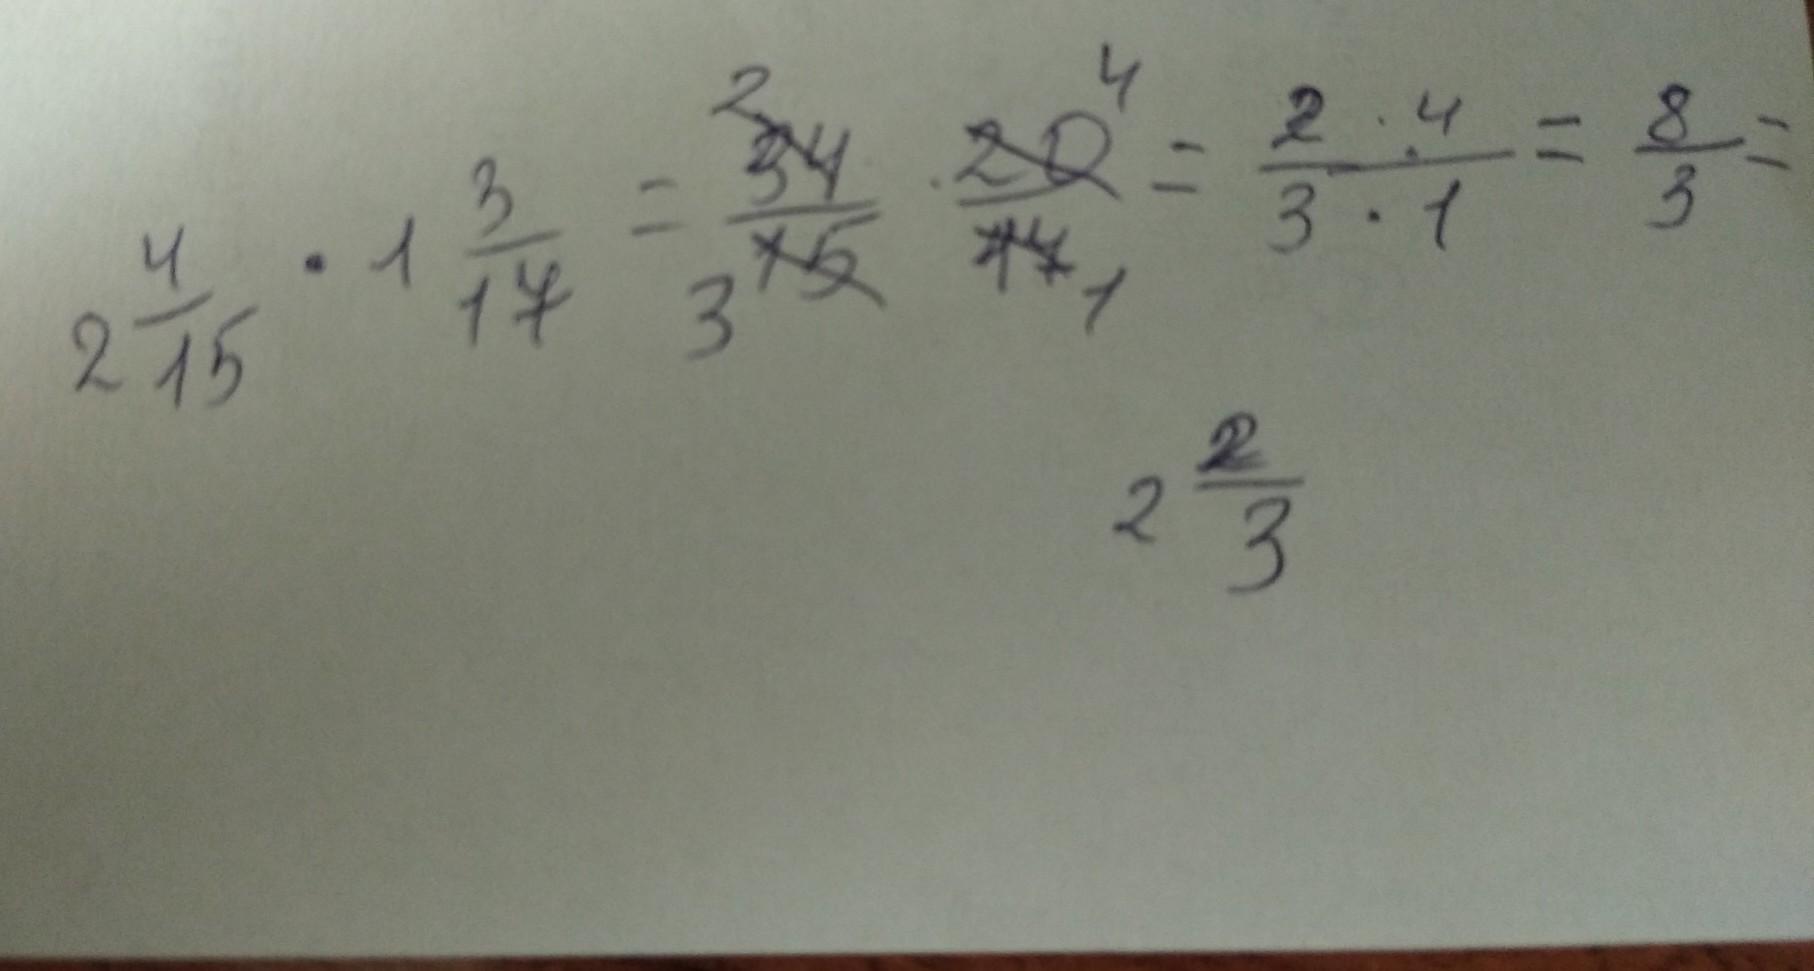 2 4/15 · 1 3/17 = 2 34/15 3 · 20 4/17 1 = 2 · 4/3 · 1 = 8/3 =
2 2/3